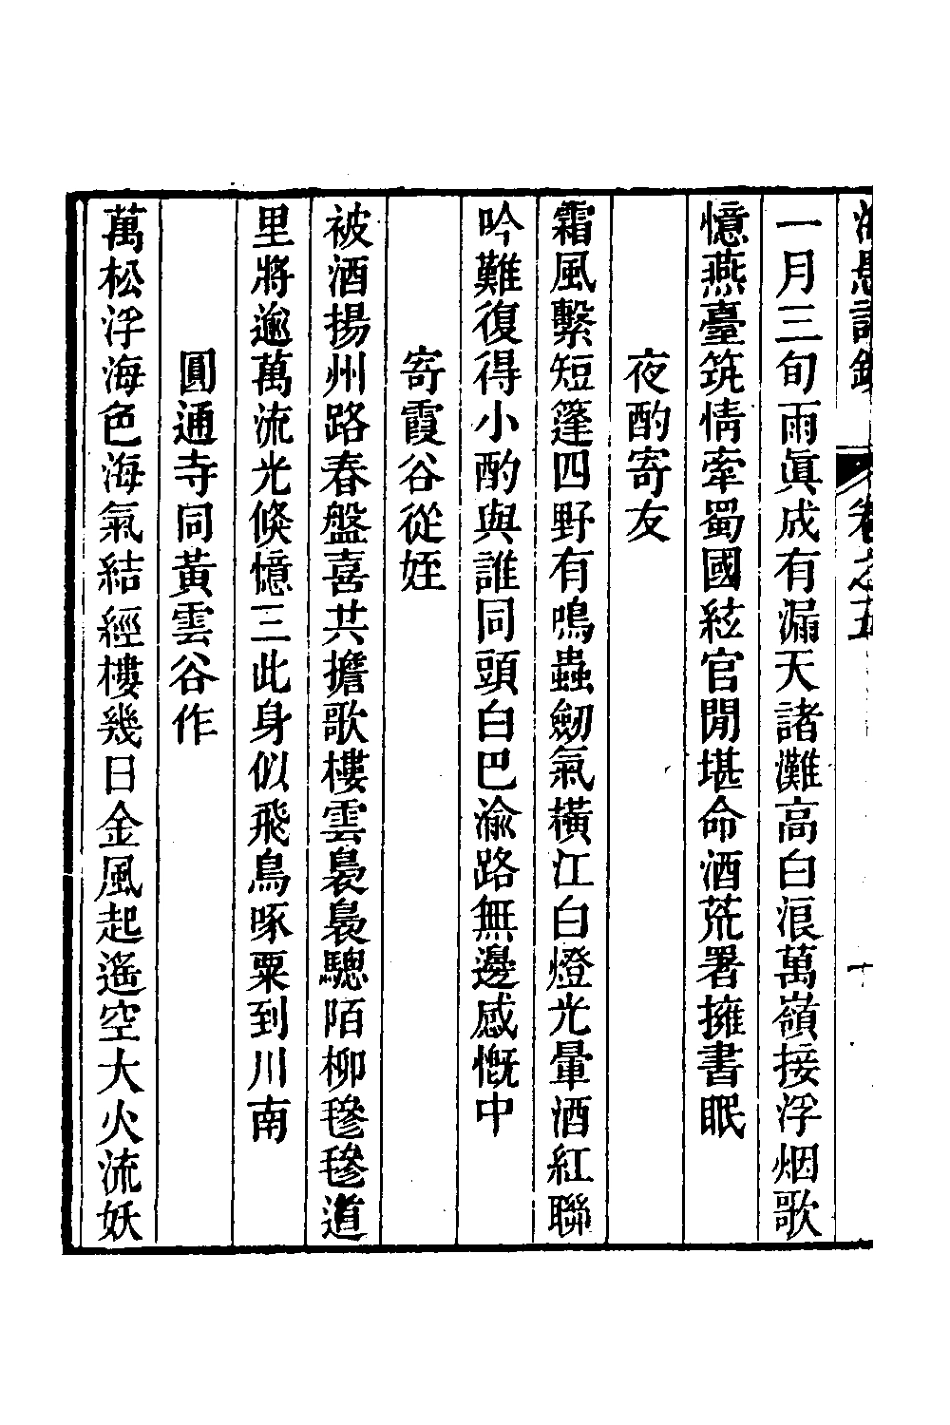 卷之五
一
一月三旬雨眞成有漏天諸灘高白浪萬嶺接浮烟歌
憶燕臺筑情牽蜀國絃官閒堪命酒荒署擁書眠
夜酌寄友
霜風繫短篷四野有鳴蟲劒氣橫江白燈光暈酒紅聯
吟難復得小酌與誰同頭白巴渝路無邊感慨中
寄霞谷從姪
被酒揚州路春盤喜共擔歌樓雲裊裊驄陌柳毿毿道
里將逾萬流光倏憶三此身似飛鳥啄粟到川南
圓通寺同黃雲谷作
萬松浮海色海氣結經樓幾日金風起遙空大火流妖